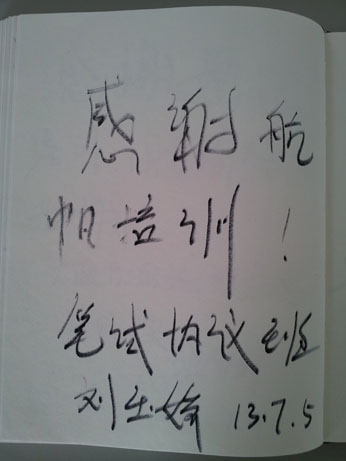 感谢航
帆培训！
笔试协议班
刘 13.7.5